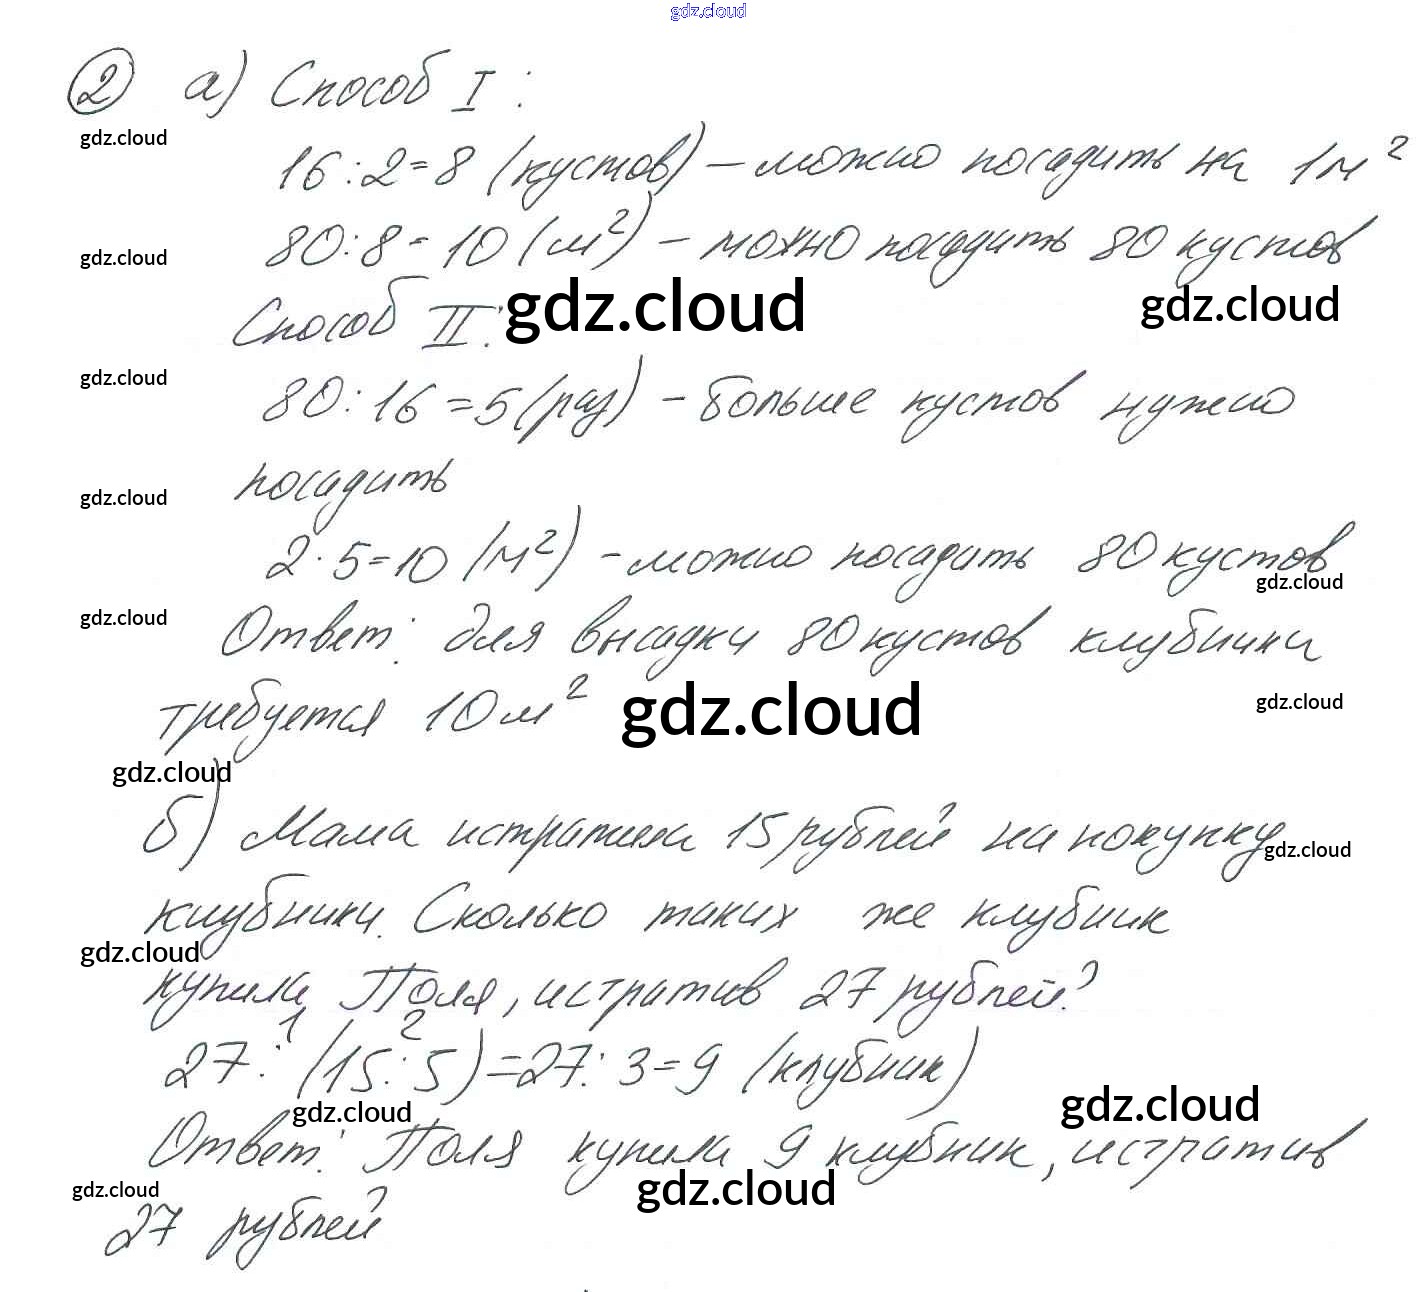 gdz.cloud
2 а) Способ I:
gdz.cloud
16:2=8 (кустов) – можно посадить на 1м²
80:8=10 (м²) – можно посадить 80 кустов
gdz.cloud
Способ II: gdz.cloud gdz.cloud
gdz.cloud
80:16=5 (раз) – больше кустов нужно
посадить
gdz.cloud
2·5=10 (м²) – можно посадить 80 кустов
gdz.cloud
gdz.cloud
Ответ: для высадки 80 кустов клубники
требуется 10 м² gdz.cloud gdz.cloud
gdz.cloud
б) Мама истратила 15 рублей на покупку
gdz.cloud
клубники. Сколько таких же клубник
gdz.cloud
купила Поля, истратив 27 рублей?
1 2
27:(15:5)=27:3=9 (клубник)
gdz.cloud gdz.cloud
Ответ: Поля купила 9 клубник, истратив
gdz.cloud gdz.cloud
27 рублей